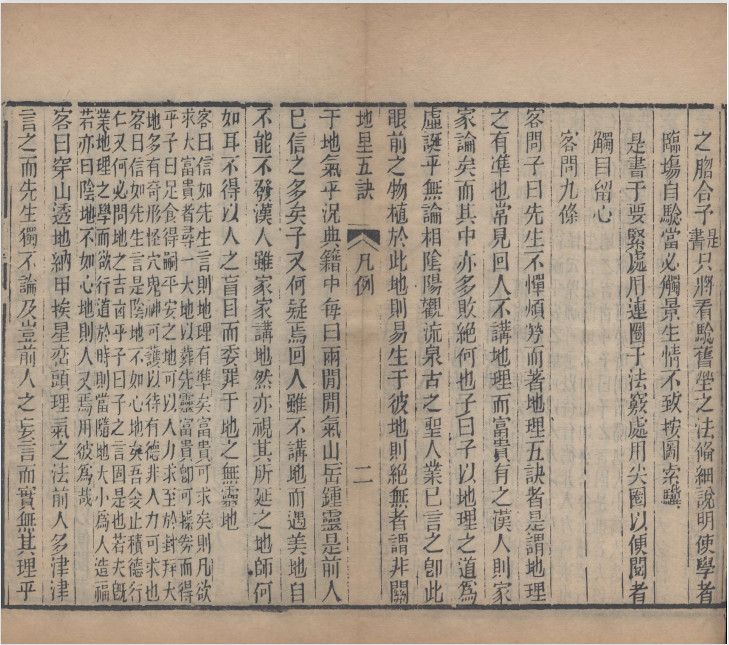 之脗合予是書只將看驗舊塋之法條細說明使學者
臨場自驗當必觸景生情不致按圖索驥
是書于要緊處用連圈于法竅處用尖圈以便閱者
觸目留心
客問九條
客問子曰先生不憚煩勞而著地理五訣者是謂地理
之有準也常見回人不講地理而富貴有之漢人則家
家論矣而其中亦多敗絕何也子曰子以地理之道為
虛誕乎無論相陰陽觀流泉古之聖人業已言之卽此
眼前之物植於此地則易生于彼地則絕無者謂非關
地里五訣 凡例 二
于地氣乎況典籍中每曰兩間間氣山岳鍾靈是前人
巳信之多矣子又何疑焉回人雖不講地而遇美地自
不能不發漢人雖家家講地然亦視其所延之地師何
如耳不得以人之盲目而委罪于地之無靈地
客曰信如先生言則地理有準矣富貴可求矣則凡欲
求大富貴者尋一大地以葬先靈富貴卽可操券而得
乎子曰足食得嗣平安之地可以人力求至於封拜大
地多有奇形怪穴鬼神可護以待有德非人力可求也
客曰信如先生言是陰地不如心地矣吾人止積德行
仁又何必問地之吉凶乎子曰子之言固是也若夫旣
業地理之學而欲行道於時則當隨地大小為人造福
若亦曰陰地不如心地則人又焉用彼為哉
客曰穿山透地納甲挨星巒頭理氣之法前人多津津
言之而先生獨不論及豈前人之妄言而實無其理乎